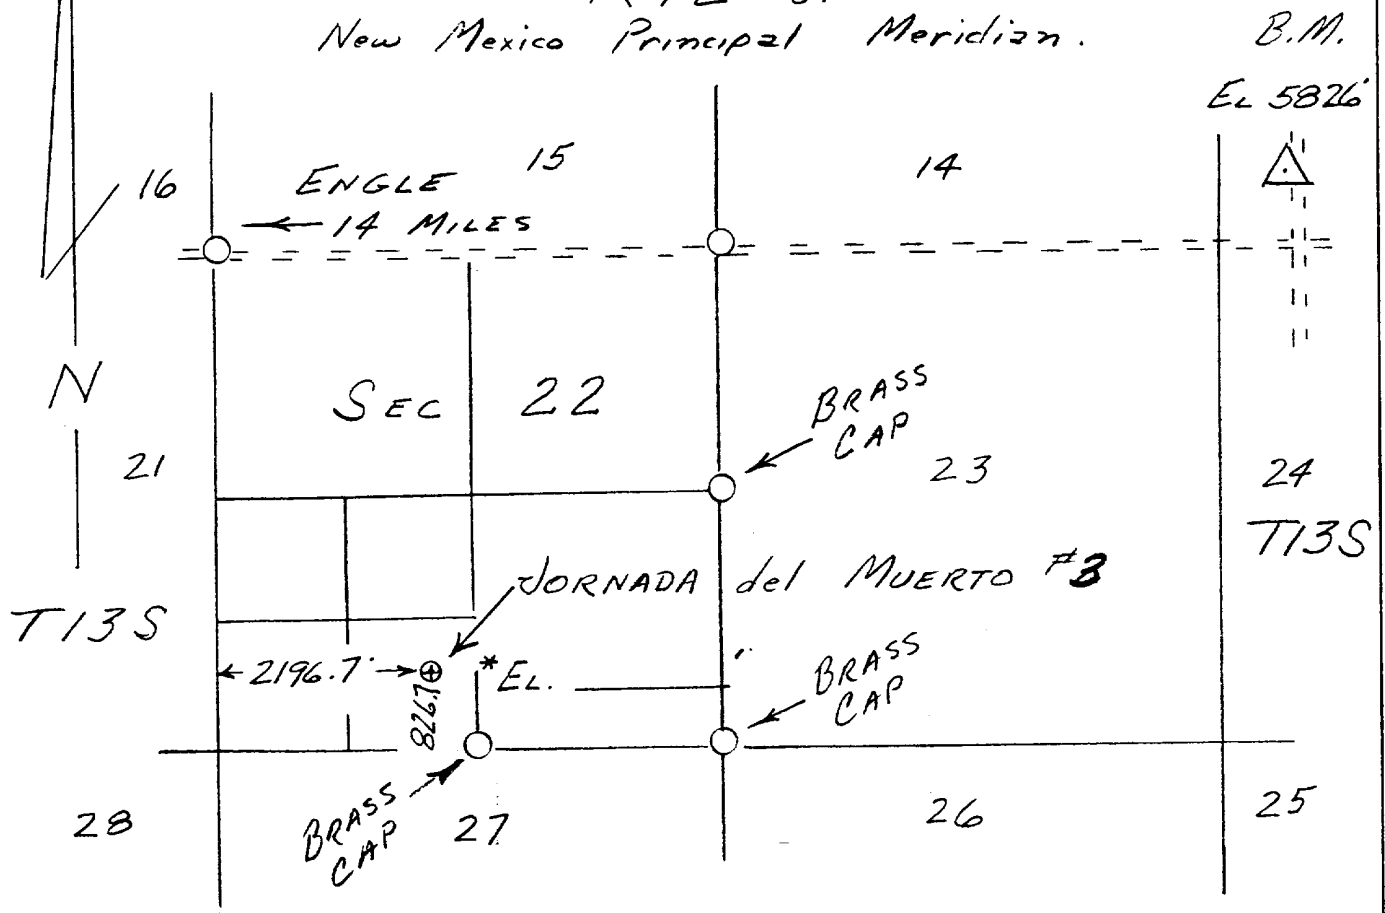 New Mexico Principal Meridian.
B.M.
EL 5826'
16
ENGLE
15
14
14 MILES
N
SEC 22
BRASS
CAP
21
23
24
T13S
JORNADA del MUERTO #3
T13S
2196.7'
826.7
*EL.
BRASS
CAP
BRASS
CAP
28
27
26
25